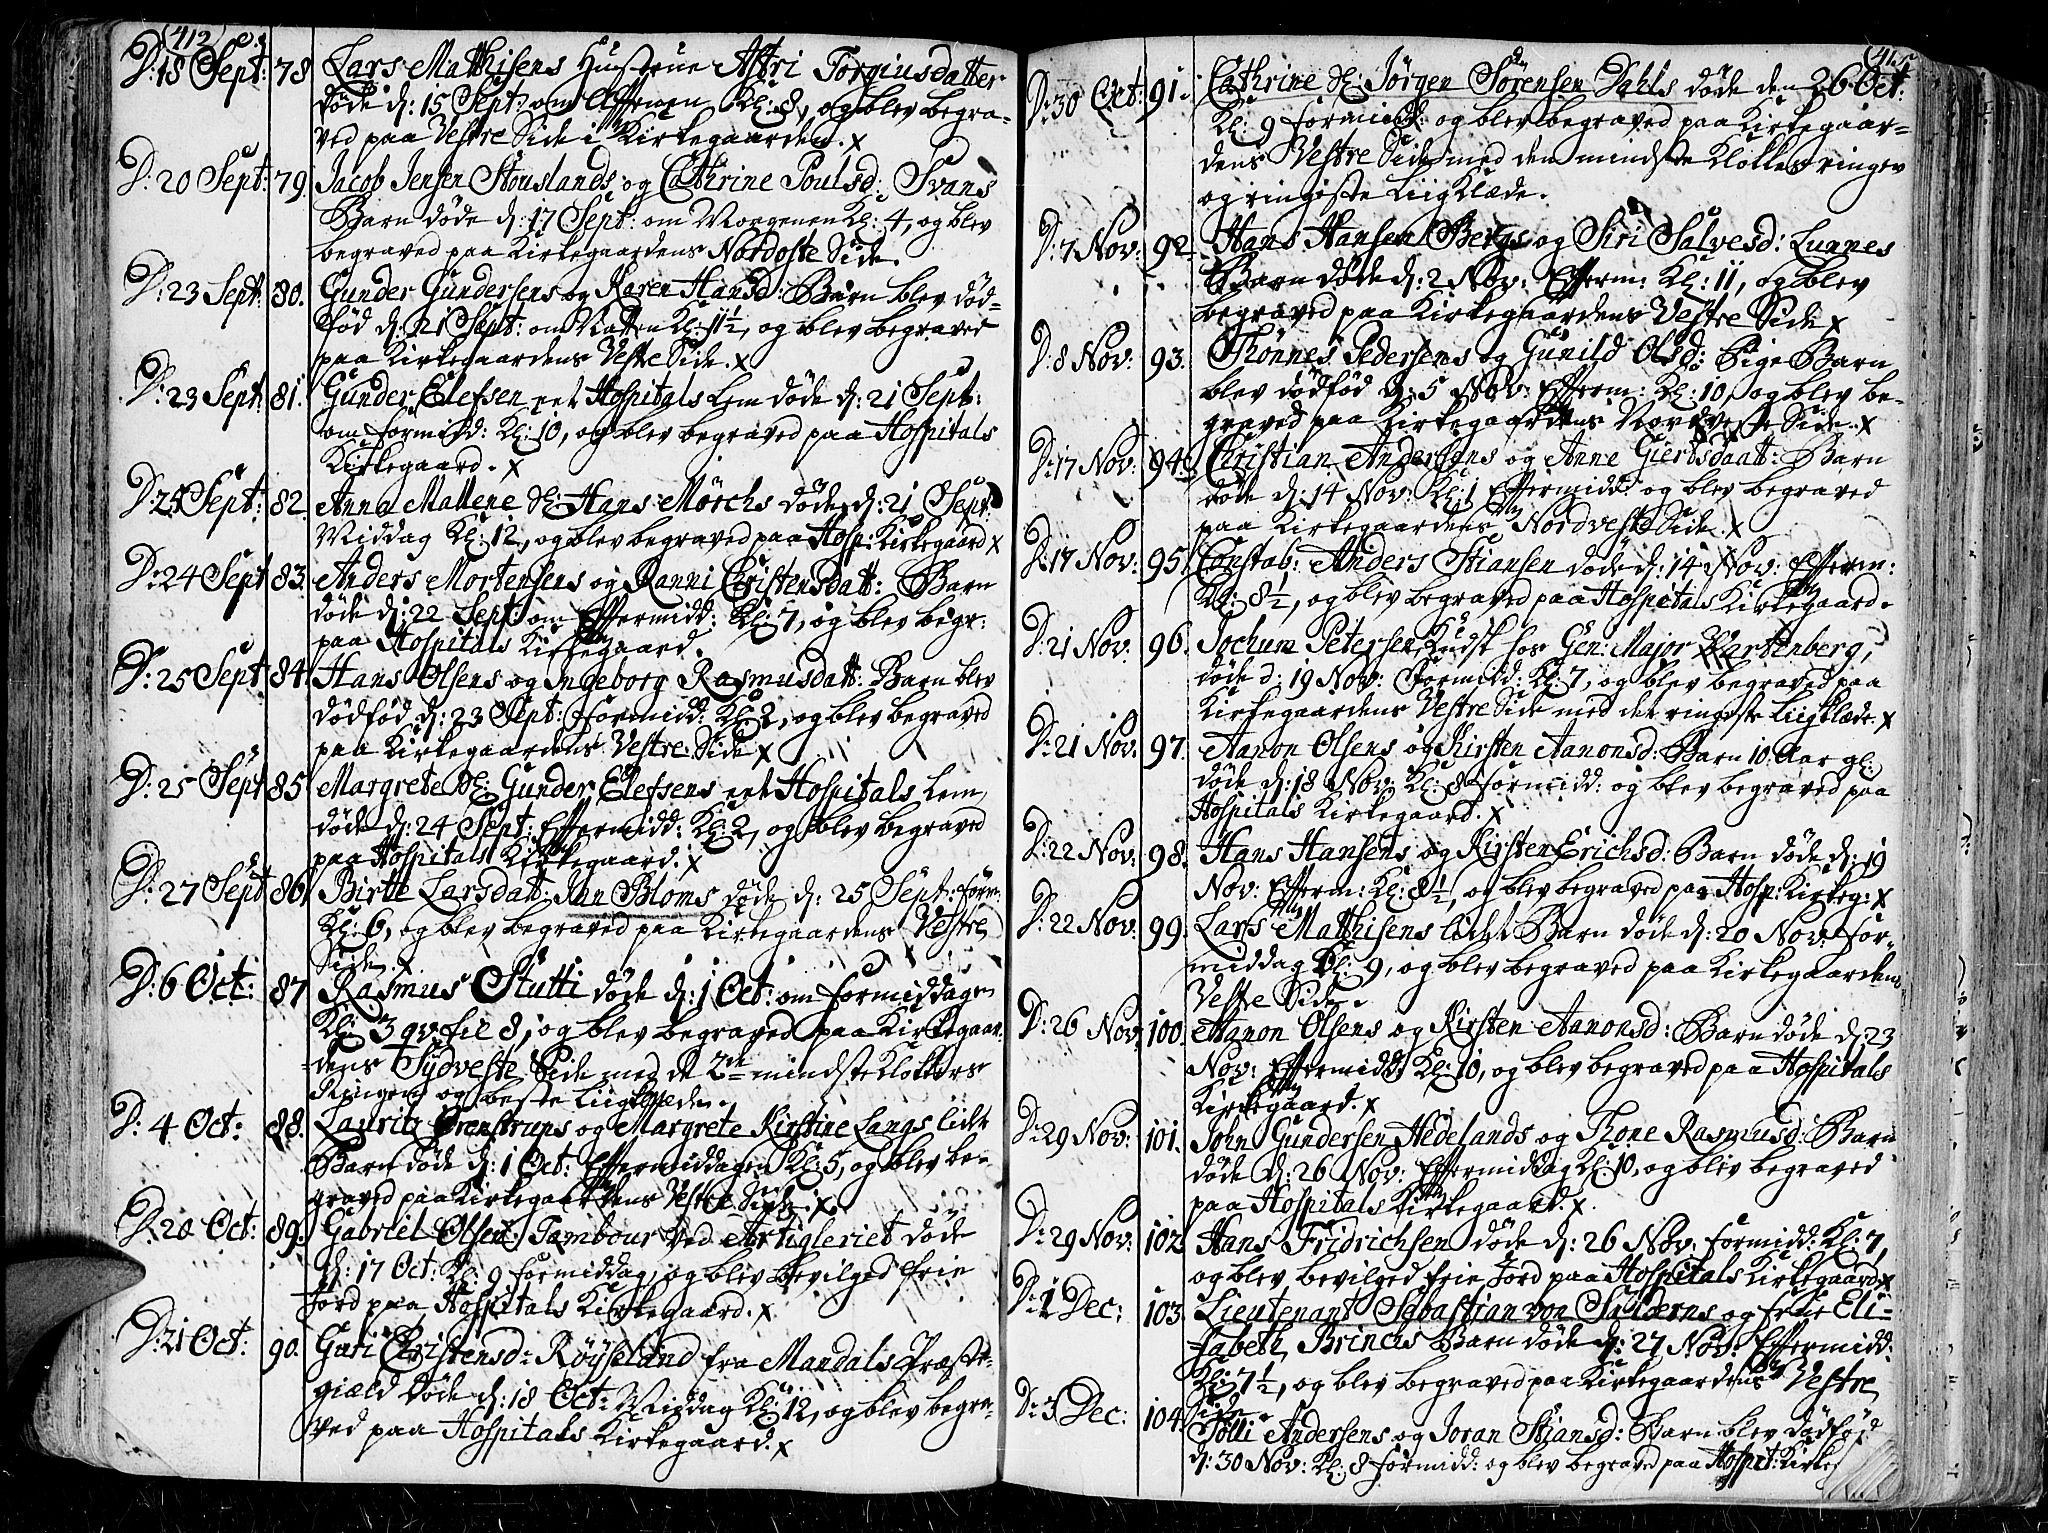 (412)
D: 18 Sept: 78 Lars Mathisens Hustrue Astri Torgiusdatter
døde d: 15 Sept: om Afftenen Kl: 8, og blev begra-
ved paa Vestre Side i Kirkegaarden. x
D: 20 Sept: 79. Jacob Jensen Stouslands og Cathrine Poulsd: Svans
Barn døde d: 17 Sept: om Morgenen Kl: 4, og blev
begraved paa Kirkegaardens Nordoste Side.
D: 23 Sept: 80. Gunder Gundersens og Karen Hansd: Barn blev död-
fød d: 21 Sept: om Natten Kl: 11½, og blev begraved
paa Kirkegaardens Vestre Side. x
D: 23 Sept: 81. Gunder Elefsen eet Hospitals Lem døde d: 21 Sept:
om formidd: Kl: 10, og blev begraved paa Hospitals
Kirkegaard. x
D: 24 Sept: 82. Anna Mallene Sl: Hans Mörchs døde d: 21 Sept:
Middag Kl: 12, og blev begraved paa Hosp: Kirkegaard x
D: 24 Sept 83. Anders Mortensens og Ranni Christensdatt: Barn
døde d: 22 Sept: om Effermidd: Kl: 7, og blev begr:
paa Hospitals Kirkegaard.
D: 25 Sept 84. Hans Olsens og Ingeborg Rasmusdatt: Barn blev
dödfød d: 23 Sept: formidd: Kl: 2, og blev begraved
paa Kirkegaardens Vestre Side x
D: 25 Sept 85. Margrete Sl: Gunder Elefsens eet Hospitals Lem
døde d: 24 Sept: Effermidd: Kl: 2, og blev begraved
paa Hospitals Kirkegaard. x
D: 27 Sept 86. Birtte Larsdatt: Jan Bloms døde d: 25 Sept: form:
Kl: 6, og blev begraved paa Kirkegaardens Vestre
Side x
D: 6 Oct: 87 Rasmus Stutti døde d: 1 Oct: om formiddagen
Kl: 3 qv til 8, og blev begraved paa Kirkegaar-
dens Sydveste Side med de 2de mindste Klokkers
Ringen og beste Liigklæde.
D: 4 Oct: 88. Lauritz Ørenstrups og Margrete Kirstine Langs lidet
Barn døde d: 1 Oct: Effermiddagen Kl: 5, og blev be-
graved paa Kirkegaardens Vestre Side. x
D: 20 Oct: 89. Gabriel Olsen Tambour ved Artigleriet døde
d: 17 Oct: Kl: 9 formiddag, og blev bevilged frie
Jord paa Hospitals Kirkegaard. x
D: 21 Oct: 90. Guri Christensd: Röyseland fra Mandals Præste-
giæld døde d: 18 Oct: Middag Kl: 12, og blev begra-
ved paa Hospitals Kirkegaard. x
D: 30 Oct: 91. Cathrine Sl: Jörgen Sörensen Dahls døde den 26 Oct:
Kl: 9 formidd: og blev begraved paa Kirkegaar-
dens Vestre Side med den mindste Klokkes ringen
og ringeste Liigklæde.
D: 7 Nov: 92. Hans Hansen Bergs og Siri Salvesd: Lunnes
Barn døde d: 2 Nov: Efferm: Kl: 11, og blev
begraved paa Kirkegaardens Vestre Side x
D: 8 Nov: 93. Thönnes Pedersens og Gunild Olsd: Pige Barn
blev dödfød d: 5 Nov: Efferm: Kl: 10, og blev be-
graved paa Kirkegaardens Nordveste Side. x
D: 17 Nov: 94. Christian Andersens og Anne Giertsdaat: Barn
døde d: 14 Nov: Kl: 1 Effermidd: og blev begraved
paa Kirkegaardens Nordveste Side. x
D: 17 Nov: 95. Constab: Anders Stiansen døde d: 14 Nov: Efferm:
Kl: 8½, og blev begraved paa Hospitals Kirkegaard.
D: 21 Nov: 96. Jochum Petersen Kudsk hos Gen: Major Wartenberg,
døde d: 19 Nov: Formidd: Kl: 7, og blev begraved paa
Kirkegaardens Vestre Side med det ringeste Liigklæde. x
D: 21 Nov: 97. Aanon Olsens og Kirsten Aanonsd: Barn 10 Aar gl:
døde d: 18 Nov: Kl: 8 formidd: og blev begraved paa
Hospitals Kirkegaard. x
D: 22 Nov: 98. Hans Hansens og Kirsten Erichsd: Barn døde d: 19
Nov: Efferm: Kl: 8½, og blev begraved paa Hosp: Kirkeg: x
D: 22 Nov: 99. Lars Mathisens lidet Barn døde d: 20 Nov: for-
middag Kl: 9, og blev begraved paa Kirkegaardens
Vestre Side.
D: 26 Nov: 100. Aanon Olsens og Kirsten Aanonsd: Barn døde d: 23
Nov: Effermidd: Kl: 10, og blev begraved paa Hospitals
Kirkegaard. x
D: 29 Nov: 101. John Gundersen Hedelands og Thone Rasmusd: Barn
døde d: 26 Nov: Effermiddag Kl: 10, og blev begraved
paa Hospitals Kirkegaard. x
D: 29 Nov: 102. Hans Fridrichsen døde d: 26 Nov: formidd: Kl: 7,
og blev bevilged frie Jord paa Hospitals Kirkegaard x
D: 1 Dec: 103. Lieutenant Sebastian von Salderns og frue Eli-
sabeth Brincks Barn døde d: 27 Nov: Effermidd:
Kl: 7½, og blev begraved paa Kirkegaardens Vestre
Side
D: 3 Dec: 104. Tolli Andersens og Joran Stiansd: Barn blev dödfød
d: 30 Nov: Kl: 8 formidd: og blev begraved paa Hospit: Kirke